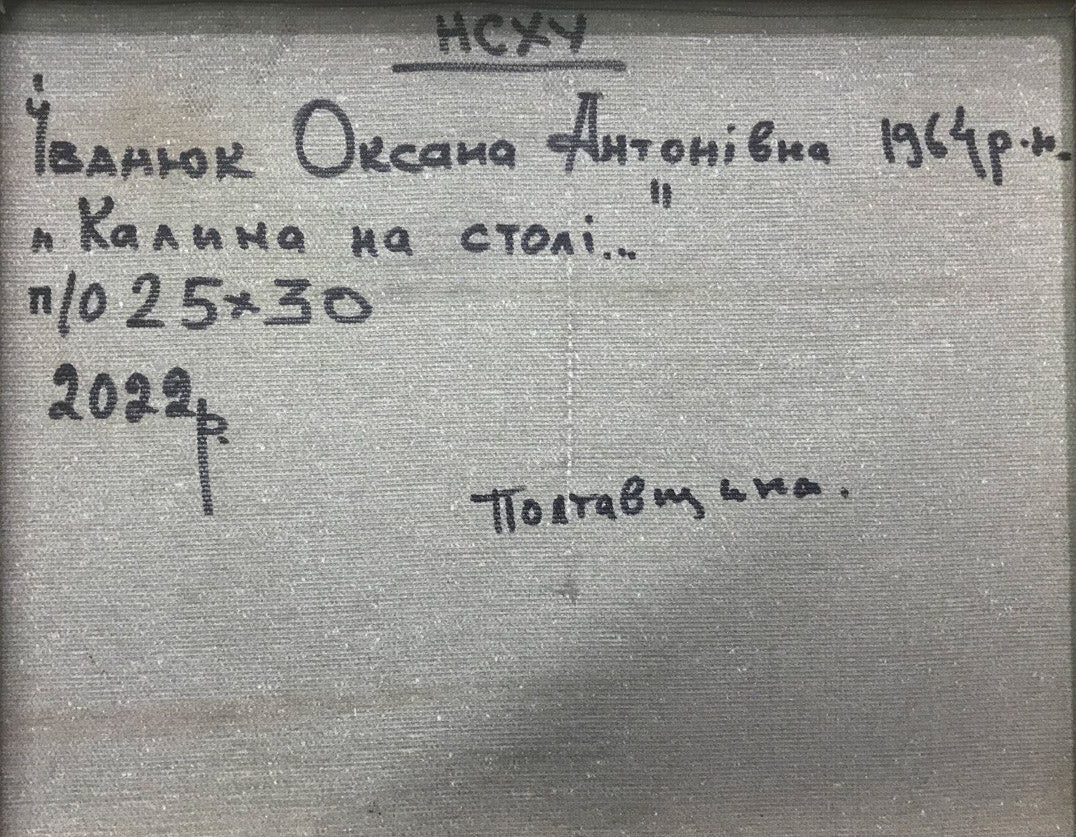 НСХУ
Іванюк Оксана Антонівна 1964р.н.
"Калина на столі..."
п/о 25×30
2022р.
Полтавщина.